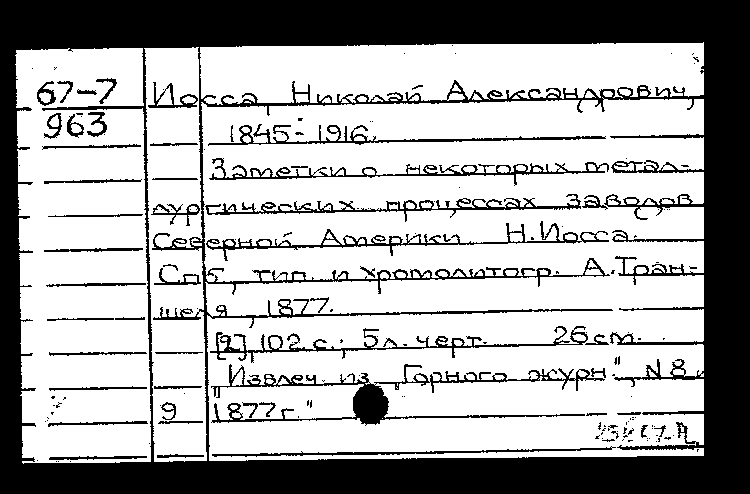 67-7 Иосса, Николай Александрович,
963 1845-1916.
Заметки о некоторых метал-
лургических процессах заводов
Северной Америки Н.Иосса.
Спб, тип. и хромолитогр. А.Тран-
шеля, 1877.
[2], 102 с.; 5л. черт. 26 см.
"Извлеч. из „Горного журн", N 8
9 1877г."